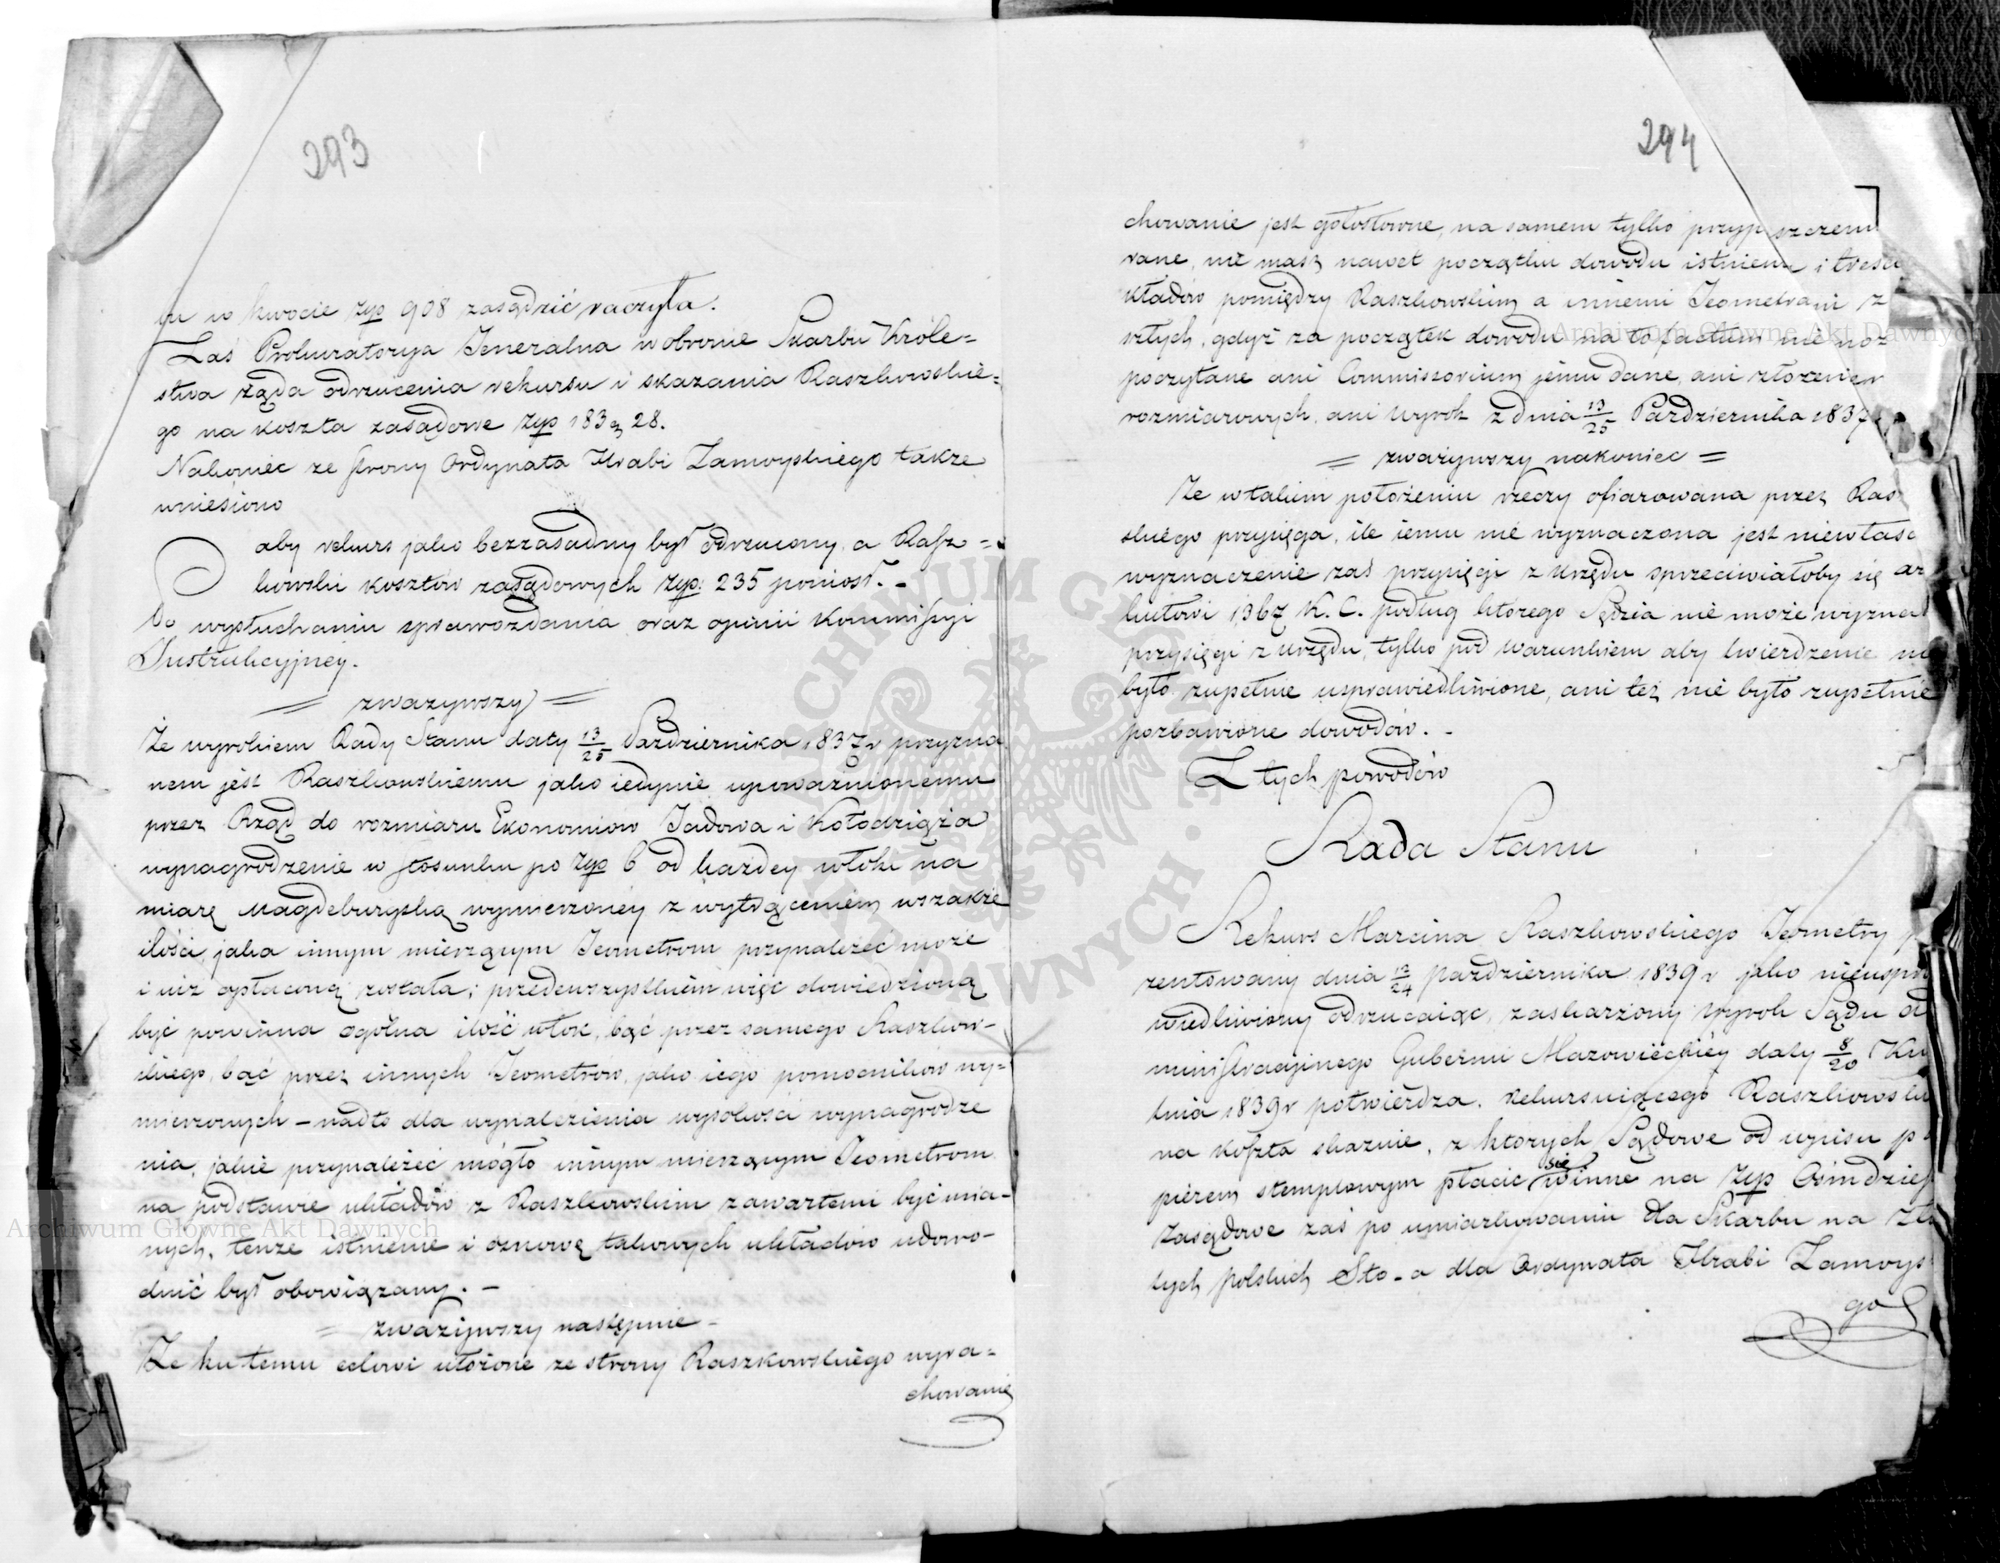 293
nu w kwocie Złp 908 zasądzić raczyła.
Zaś Prokuratorya Jeneralna w obronie Skarbu Króle=
stwa żąda odrzucenia rekursu i skazania Raszkowskie=
go na koszta zasądowe Złp 183 g 28.
Nakoniec ze strony Ordynata Hrabi Zamoyskiego także
wniesiono
aby rekurs jako bezzasadny był odrzucony, a Rasz=
kowski kosztów zasądowych Złp: 235 poniósł. -
Po wysłuchaniu sprawozdania oraz opinii Kommissyi
Instrukcyjney.
= zważywszy =
Że wyrokiem Rady Stanu daty 13/25 Października 1837 r przyzna
nem jest Raszkowskiemu jako iedynie upoważnionemu
przez Rząd do rozmiaru Ekonomiow Jadowa i Kołodziąża
wynagrodzenie w stosunku po Złp 6 od każdey włóki na
miarę Magdeburgską wymierzoney z wytrąceniem wszakże
ilości jaka innym mierzącym Jeometrom przynależeć może
i już opłaconą została; przedewszystkiem więc dowiedzioną
być powinna ogólna ilość włók, bąć przez samego Raszkow-
skiego, bąć przez innych Jeometrów, jako iego pomocników wy=
mierzonych – nadto dla wynalezienia wysokości wynagrodze
nia, jakie przynależeć mógło innym mierzącym Jeometrom
na podstawie układów z Raszkowskim zawartemi być mia-
nych, tenże istnienie i osnowę takowych układów udowo-
dnić był obowiązany. -
= zważywszy następnie -
Że ku temu celowi ułożone ze strony Raszkowskiego wyra=
chowanie
294
chowanie jest gołosłowne, na samem tylko przypuszczeni
wane, nie masz nawet początku dowodu istnienia i treści
kładów pomiędzy Raszkowskim a innemi Jeometrami z
rłych, gdyż za początek dowodu na to factum nie moż
poczytane ani Commissorium jemu dane, ani złożenie r
rozmiarowych, ani wyrok z dnia 13/25 Października 1837
= zważywszy nakoniec =
Że w takim położeniu rzeczy ofiarowana przez Ras
skiego przysięga, ile iemu nie wyznaczona jest niewłaśc
wyznaczenie zaś przysięgi z urzędu sprzeciwiałoby się ar
kułowi 1367 K. C. podług którego Sędzia nie może wyzna
przysięgi z urzędu, tylko pod warunkiem aby twierdzenie ni
było zupełnie usprawiedliwione, ani też nie było zupełnie
pozbawione dowodów. -
Z tych powodów
Rada Stanu
Rekurs Marcina Raszkowskiego Jeometry p
zentowany dnia 12/24 października 1839 r jako nieuspra
wiedliwiony odrzucaiąc, zaskarżony wyrok Sądu Ad
ministracyjnego Gubernii Mazowieckiéy daty 8/20 Kw
tnia 1839 r potwierdza. rekursuiącego Raszkowski
na koszta skazuie, z których Sądowe od wpisu p
pierem stemplowym płacić się winne na Złp Ośmdzies
zasądowe zaś po umiarkowaniu dla Skarbu na Zło
tych polskich Sto - a dla Ordynata Hrabi Zamoys
go
Archiwum Główne Akt Dawnych
Archiwum Główne Akt Dawnych
ARCHIWUM GŁÓWNE AKT DAWNYCH